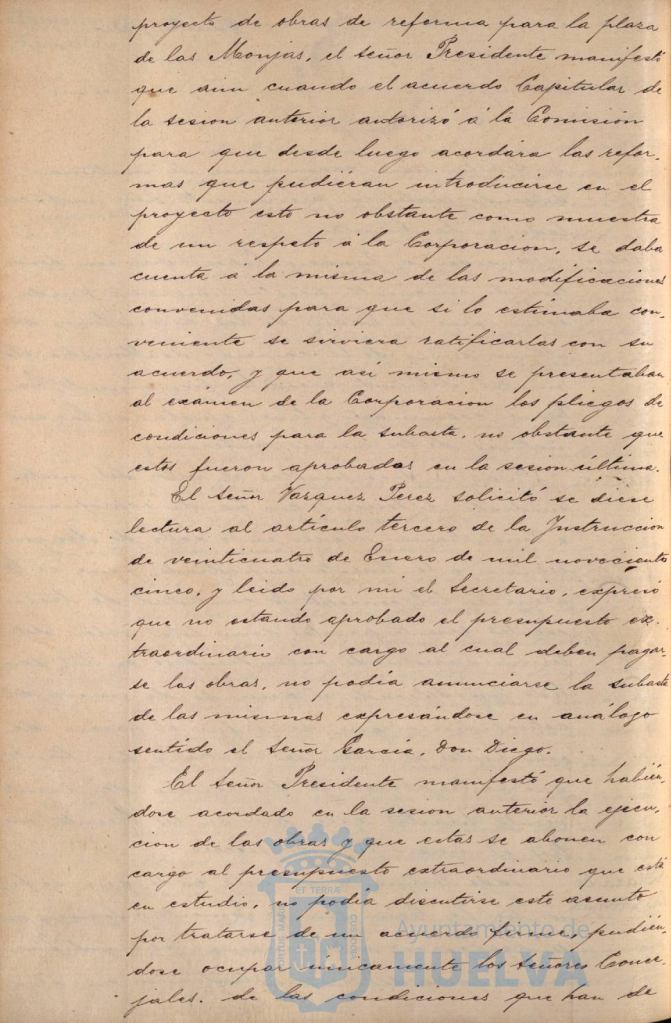 proyecto de obras de reforma para la plaza
de las Monjas, el señor Presidente manifestó
que aun cuando el acuerdo Capitular de
la sesion anterior autorizó á la Comisión
para que desde luego acordára las refor-
mas que pudiéran introducirse en el
proyecto esto no obstante como muestra
de un respeto á la Corporacion, se daba
cuenta á la misma de las modificaciones
convenidas para que si lo estimaba con-
veniente se sirviera ratificarlas con su
acuerdo, y que así mismo se presentaban
al exámen de la Corporacion los pliegos de
condiciones para la subasta, no obstante que
estos fueron aprobados en la sesion última.
El señor Vazquez Perez solicitó se diese
lectura al artículo tercero de la Instruccion
de veinticuatro de Enero de mil novecientos
cinco, y leido por mi el Secretario, expresó
que no estando aprobado el presupuesto ex-
traordinario con cargo al cual deben pagar-
se las obras, no podia anunciarse la subasta
de las mismas expresándose en análogo
sentido el señor García, Don Diego.
El señor Presidente manifestó que habién-
dose acordado en la sesion anterior la ejecu-
cion de las obras y que estas se abonen con
cargo al presupuesto extraordinario que está
en estudio, no podia discutirse este asunto
por tratarse de un acuerdo firme, pudién-
dose ocupar únicamente los señores Conce-
jales, de las condiciones que han de
ET TERRÆ
PORTUS MARIS
CUSTODIA
Ayuntamiento de
HUELVA